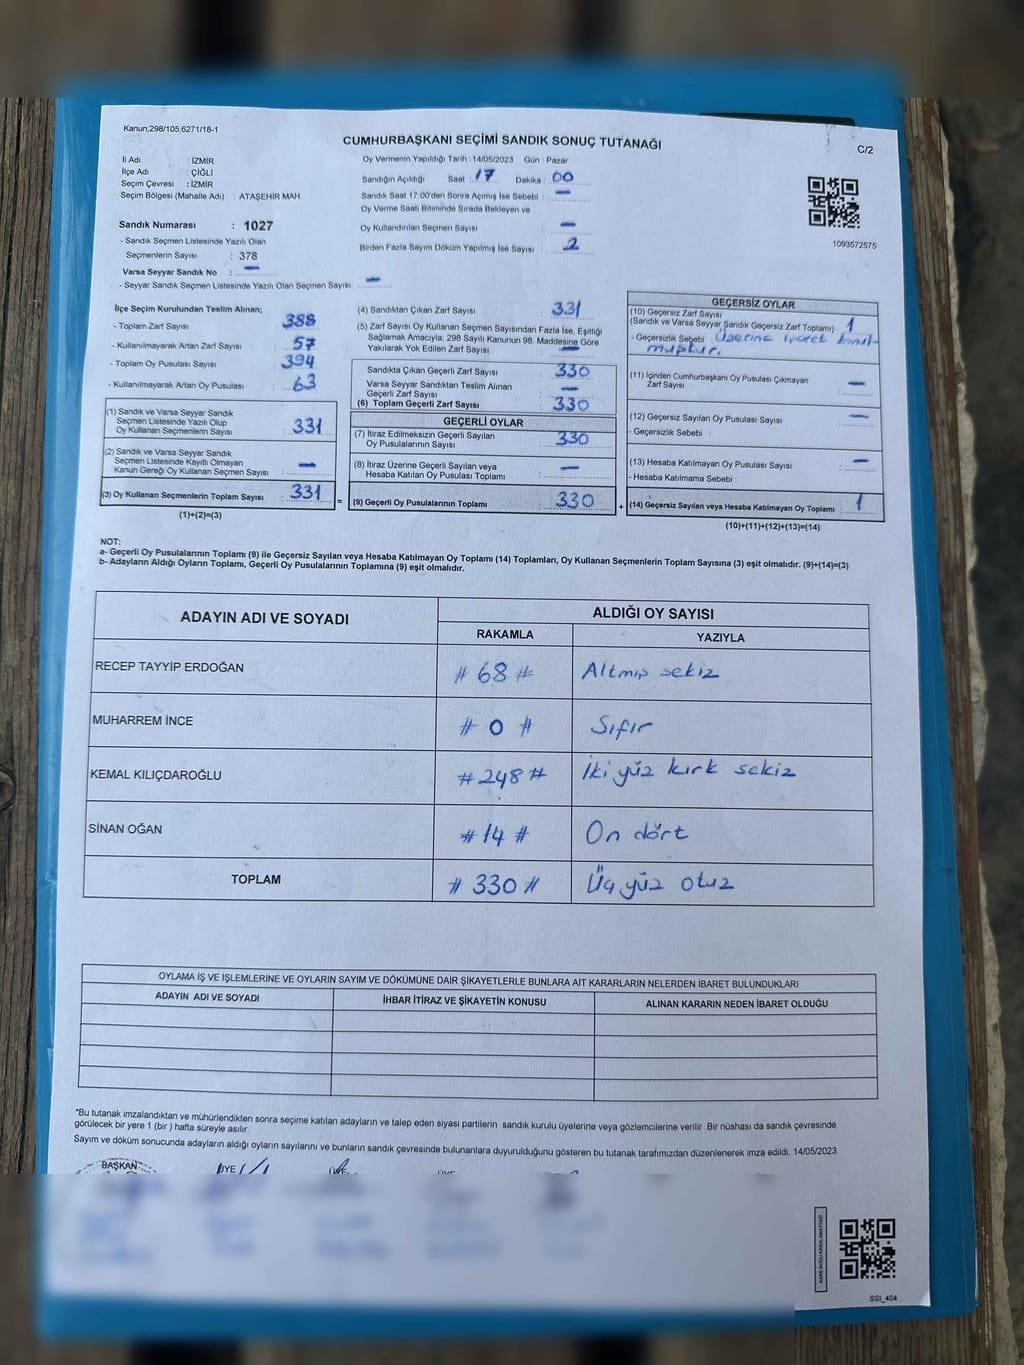 Kanun;298/105,6271/18-1
CUMHURBAŞKANI SEÇİMİ SANDIK SONUÇ TUTANAĞI
C/2
İl Adı : İZMİR
İlçe Adı : ÇİĞLİ
Seçim Çevresi : İZMİR
Seçim Bölgesi (Mahalle Adı) : ATAŞEHİR MAH.
Sandık Numarası : 1027
- Sandık Seçmen Listesinde Yazılı Olan
Seçmenlerin Sayısı : 378
Varsa Seyyar Sandık No : —
- Seyyar Sandık Seçmen Listesinde Yazılı Olan Seçmen Sayısı: —
Oy Vermenin Yapıldığı Tarih : 14/05/2023 Gün : Pazar
Sandığın Açıldığı Saat : 17 Dakika : 00
Sandık Saat 17:00'den Sonra Açılmış İse Sebebi : —
Oy Verme Saati Bitiminde Sırada Bekleyen ve
Oy Kullandırılan Seçmen Sayısı : —
Birden Fazla Sayım Döküm Yapılmış İse Sayısı : 2
1093572575
İlçe Seçim Kurulundan Teslim Alınan;
- Toplam Zarf Sayısı : 388
- Kullanılmayarak Artan Zarf Sayısı : 57
- Toplam Oy Pusulası Sayısı : 394
- Kullanılmayarak Artan Oy Pusulası : 63
(1) Sandık ve Varsa Seyyar Sandık
Seçmen Listesinde Yazılı Olup
Oy Kullanan Seçmenlerin Sayısı : 331
(2) Sandık ve Varsa Seyyar Sandık
Seçmen Listesinde Kayıtlı Olmayan
Kanun Gereği Oy Kullanan Seçmen Sayısı : —
(3) Oy Kullanan Seçmenlerin Toplam Sayısı : 331
(1)+(2)=(3)
(4) Sandıktan Çıkan Zarf Sayısı : 331
(5) Zarf Sayısı Oy Kullanan Seçmen Sayısından Fazla İse, Eşitliği
Sağlamak Amacıyla, 298 Sayılı Kanunun 98. Maddesine Göre
Yakılarak Yok Edilen Zarf Sayısı : —
Sandıkta Çıkan Geçerli Zarf Sayısı : 330
Varsa Seyyar Sandıktan Teslim Alınan
Geçerli Zarf Sayısı : —
(6) Toplam Geçerli Zarf Sayısı : 330
GEÇERLİ OYLAR
(7) İtiraz Edilmeksizin Geçerli Sayılan
Oy Pusulalarının Sayısı : 330
(8) İtiraz Üzerine Geçerli Sayılan veya
Hesaba Katılan Oy Pusulası Toplamı : —
= (9) Geçerli Oy Pusulalarının Toplamı : 330 +
GEÇERSİZ OYLAR
(10) Geçersiz Zarf Sayısı
(Sandık ve Varsa Seyyar Sandık Geçersiz Zarf Toplamı) : 1
- Geçersizlik Sebebi : Üzerine işaret
muştur.
(11) İçinden Cumhurbaşkanı Oy Pusulası Çıkmayan
Zarf Sayısı : —
(12) Geçersiz Sayılan Oy Pusulası Sayısı : —
- Geçersizlik Sebebi :
(13) Hesaba Katılmayan Oy Pusulası Sayısı : —
- Hesaba Katılmama Sebebi :
(14) Geçersiz Sayılan veya Hesaba Katılmayan Oy Toplamı : 1
(10)+(11)+(12)+(13)=(14)
NOT:
a- Geçerli Oy Pusulalarının Toplamı (9) ile Geçersiz Sayılan veya Hesaba Katılmayan Oy Toplamı (14) Toplamları, Oy Kullanan Seçmenlerin Toplam Sayısına (3) eşit olmalıdır. (9)+(14)=(3)
b- Adayların Aldığı Oyların Toplamı, Geçerli Oy Pusulalarının Toplamına (9) eşit olmalıdır.
ADAYIN ADI VE SOYADI ALDIĞI OY SAYISI
RAKAMLA YAZIYLA
RECEP TAYYİP ERDOĞAN # 68 # Altmış sekiz
MUHARREM İNCE # 0 # Sıfır
KEMAL KILIÇDAROĞLU # 248 # İki yüz kırk sekiz
SİNAN OĞAN # 14 # On dört
TOPLAM # 330 # Üç yüz otuz
OYLAMA İŞ VE İŞLEMLERİNE VE OYLARIN SAYIM VE DÖKÜMÜNE DAİR ŞİKAYETLERLE BUNLARA AİT KARARLARIN NELERDEN İBARET BULUNDUKLARI
ADAYIN ADI VE SOYADI İHBAR İTİRAZ VE ŞİKAYETİN KONUSU ALINAN KARARIN NEDEN İBARET OLDUĞU
*Bu tutanak imzalandıktan ve mühürlendikten sonra seçime katılan adayların ve talep eden siyasi partilerin sandık kurulu üyelerine veya gözlemcilerine verilir .Bir nüshası da sandık çevresinde
görülecek bir yere 1 (bir ) hafta süreyle asılır.
Sayım ve döküm sonucunda adayların aldığı oyların sayılarını ve bunların sandık çevresinde bulunanlara duyurulduğunu gösteren bu tutanak tarafımızdan düzenlenerek imza edildi. 14/05/2023
BAŞKAN ÜYE
KARE KODU KARALAMAYINIZ!
SSI_404